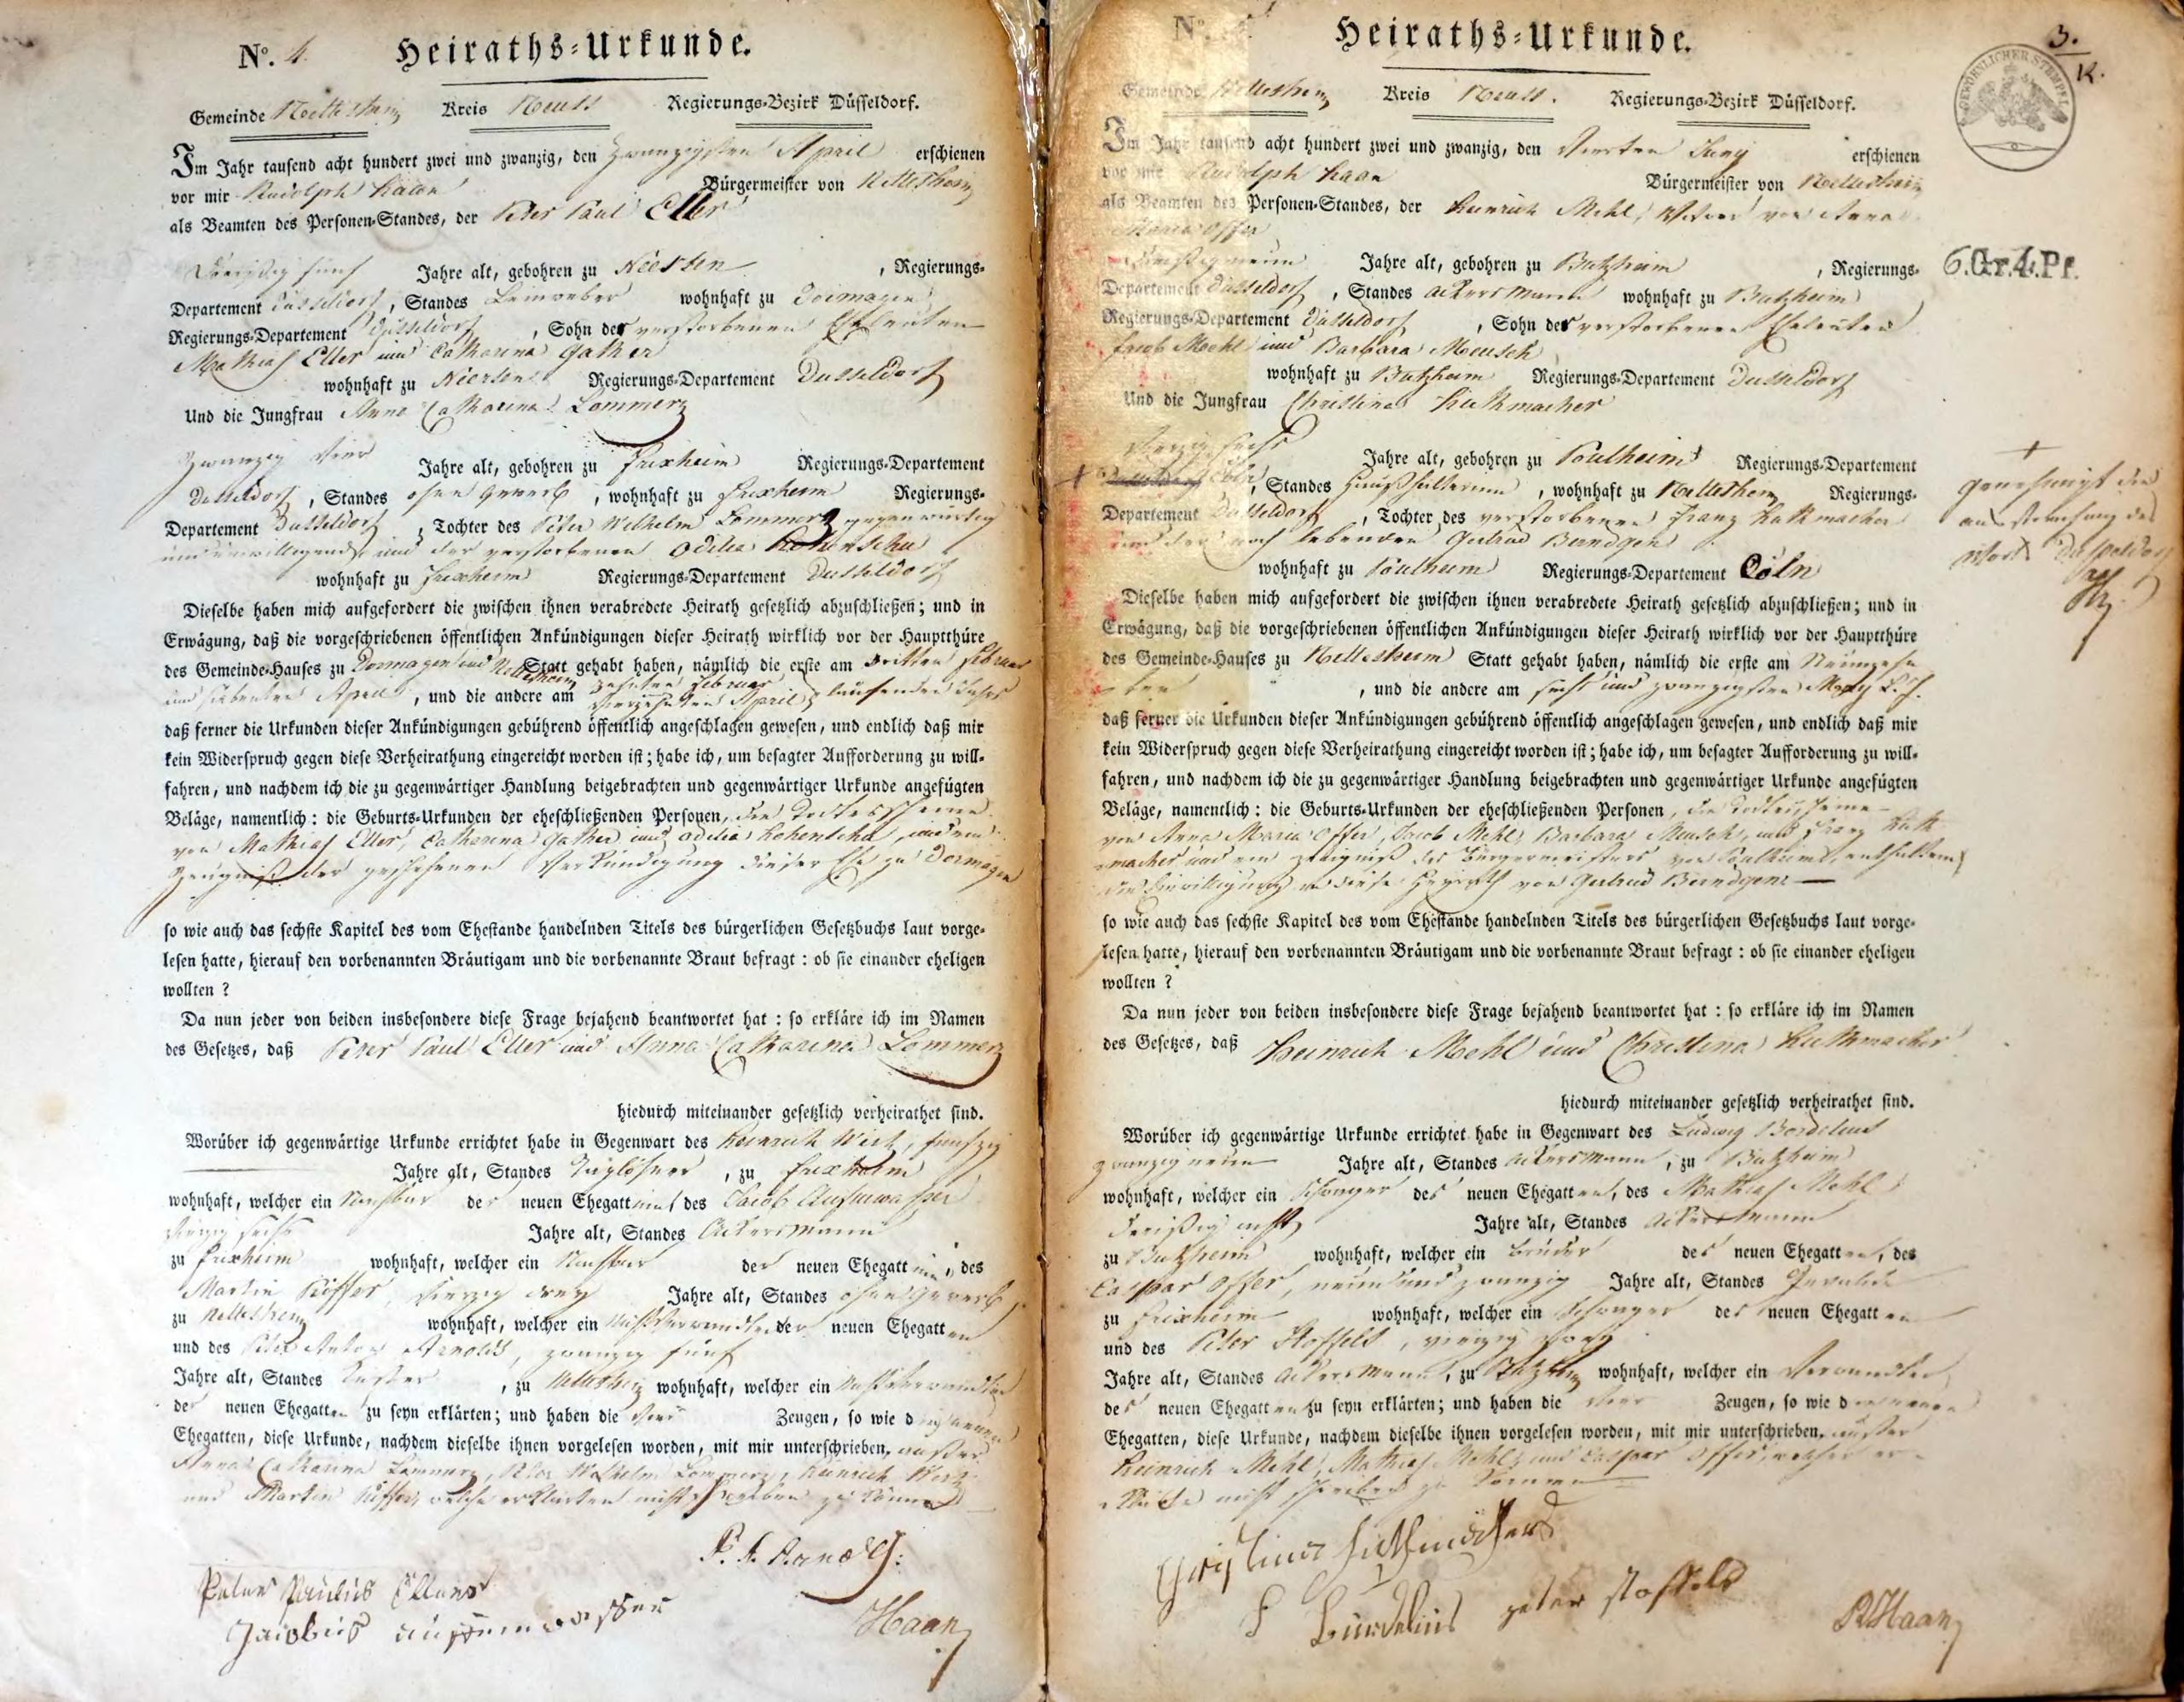 No. 4. Heiraths-Urkunde.
Gemeinde Nettesheim Kreis Neuss Regierungs-Bezirk Düsseldorf.
Im Jahr tausend acht hundert zwei und zwanzig, den zwanzigsten April erschienen
vor mir Rudolph Haan Bürgermeister von Nettesheim
als Beamten des Personen-Standes, der Peter Paul Eller
dreißig fünf Jahre alt, gebohren zu Niersen, Regierungs-
Departement Düsseldorf, Standes Leinweber wohnhaft zu Dormagen
Regierungs-Departement Düsseldorf, Sohn der verstorbenen Eheleuten
Mathias Eller und Catharina Gather
wohnhaft zu Niersen Regierungs-Departement Dusseldorf
Und die Jungfrau Anna Catharina Lommerz
zwanzig vier Jahre alt, gebohren zu Frixheim Regierungs-Departement
Dusseldorf, Standes ohne Gewerb, wohnhaft zu Frixheim Regierungs-
Departement Dusseldorf, Tochter des Peter Wilhelm Lommerz gegenwärtig
und einwilligend, und der verstorbenen Odilia
wohnhaft zu Frixheim Regierungs-Departement Dusseldorf
Dieselbe haben mich aufgefordert die zwischen ihnen verabredete Heirath gesetzlich abzuschließen; und in
Erwägung, daß die vorgeschriebenen öffentlichen Ankündigungen dieser Heirath wirklich vor der Hauptthüre
des Gemeinde-Hauses zu Dormagen und Nettesheim Statt gehabt haben, nämlich die erste am dritten Februar
und siebenten April, und die andere am zehnten Februar vierzehnten April laufenden Jahres
daß ferner die Urkunden dieser Ankündigungen gebührend öffentlich angeschlagen gewesen, und endlich daß mir
kein Widerspruch gegen diese Verheirathung eingereicht worden ist; habe ich, um besagter Aufforderung zu will-
fahren, und nachdem ich die zu gegenwärtiger Handlung beigebrachten und gegenwärtiger Urkunde angefügten
Beläge, namentlich: die Geburts-Urkunden der eheschließenden Personen, die Todtesscheine
von Mathias Eller, Catharina Gather und Odilia
Zeugniß der geschehenen Verkündigung dieser Ehe zu Dormagen
so wie auch das sechste Kapitel des vom Ehestande handelnden Titels des bürgerlichen Gesetzbuchs laut vorge-
lesen hatte, hierauf den vorbenannten Bräutigam und die vorbenannte Braut befragt: ob sie einander eheligen
wollten?
Da nun jeder von beiden insbesondere diese Frage bejahend beantwortet hat: so erkläre ich im Namen
des Gesetzes, daß Peter Paul Eller und Anna Catharina Lommerz
hiedurch miteinander gesetzlich verheirathet sind.
Worüber ich gegenwärtige Urkunde errichtet habe in Gegenwart des Heinrich Wirtz, fünfzig
Jahre alt, Standes Taglöhner, zu Frixheim
wohnhaft, welcher ein Nachbar der neuen Ehegattinn des Jacob
vierzig sechs Jahre alt, Standes Ackersmann
zu Frixheim wohnhaft, welcher ein Nachbar der neuen Ehegattinn, des
Martin Küffer, vierzig drey Jahre alt, Standes ohne Gewerb,
zu Nettesheim wohnhaft, welcher ein nicht Verwandter der neuen Ehegatten
und des Peter Anton Arnolds, zwanzig fünf
Jahre alt, Standes Küster, zu Nettesheim wohnhaft, welcher ein nicht Verwandter
der neuen Ehegatten zu seyn erklärten; und haben die vier Zeugen, so wie die neuen
Ehegatten, diese Urkunde, nachdem dieselbe ihnen vorgelesen worden, mit mir unterschrieben, außer
Anna Catharina Lommerz, Peter Wilhelm Lommerz, Heinrich Wirtz
und Martin Küffer, welche erklärten nicht schreiben zu können
P. A. Arnolds
Peter Paulus Ellers
Jacobus
Haan
No. Heiraths-Urkunde.
Gemeinde Nettesheim Kreis Neuss. Regierungs-Bezirk Düsseldorf.
3.
K.
GEWÖHNLICHER STEMPEL
6.Gr.4.Pf.
Im Jahr tausend acht hundert zwei und zwanzig, den vierten Juny erschienen
vor mir Rudolph Haan Bürgermeister von Nettesheim
als Beamten des Personen-Standes, der Heinrich Mehl, Witwer von Anna
Maria Offer
dreißig neun Jahre alt, gebohren zu Butzheim, Regierungs-
Departement Dusseldorf, Standes Ackersmann wohnhaft zu Butzheim
Regierungs-Departement Düsseldorf, Sohn der verstorbenen Eheleuten
Jacob Mehl und Barbara Meusch
wohnhaft zu Butzheim Regierungs-Departement Dusseldorf
Und die Jungfrau Christina Huthmacher
vierzig sechs Jahre alt, gebohren zu Poulheim Regierungs-Departement
Cöln, Standes Haushälterinn, wohnhaft zu Nettesheim Regierungs-
Departement Dusseldorf, Tochter des verstorbenen Franz Huthmacher
und der noch lebenden Gertrud Berndgen
wohnhaft zu Poulheim Regierungs-Departement Cöln
genehmigt die
ausstreichung des
Worts Dusseldorf
Dieselbe haben mich aufgefordert die zwischen ihnen verabredete Heirath gesetzlich abzuschließen; und in
Erwägung, daß die vorgeschriebenen öffentlichen Ankündigungen dieser Heirath wirklich vor der Hauptthüre
des Gemeinde-Hauses zu Nettesheim Statt gehabt haben, nämlich die erste am Neunzehn
ten, und die andere am sechs und zwanzigsten May l. J.
daß ferner die Urkunden dieser Ankündigungen gebührend öffentlich angeschlagen gewesen, und endlich daß mir
kein Widerspruch gegen diese Verheirathung eingereicht worden ist; habe ich, um besagter Aufforderung zu will-
fahren, und nachdem ich die zu gegenwärtiger Handlung beigebrachten und gegenwärtiger Urkunde angefügten
Beläge, namentlich: die Geburts-Urkunden der eheschließenden Personen, die Todtesscheine
von Anna Maria Offer, Jacob Mehl, Barbara Meusch, und Franz Huth
macher und ein Zeugniß des Bürgermeisters von Poulheim, enthaltend
die Einwilligung in diese Heyrath von Gertrud Berndgen
so wie auch das sechste Kapitel des vom Ehestande handelnden Titels des bürgerlichen Gesetzbuchs laut vorge-
lesen hatte, hierauf den vorbenannten Bräutigam und die vorbenannte Braut befragt: ob sie einander eheligen
wollten?
Da nun jeder von beiden insbesondere diese Frage bejahend beantwortet hat: so erkläre ich im Namen
des Gesetzes, daß Heinrich Mehl und Christina Huthmacher
hiedurch miteinander gesetzlich verheirathet sind.
Worüber ich gegenwärtige Urkunde errichtet habe in Gegenwart des Ludwig Bordelius
zwanzig neun Jahre alt, Standes Ackersmann, zu Butzheim
wohnhaft, welcher ein Schwager des neuen Ehegatten, des Mathias Mehl
dreißig acht Jahre alt, Standes Ackersmann
zu Butzheim wohnhaft, welcher ein Bruder des neuen Ehegatten, des
Caspar Offer, neun und zwanzig Jahre alt, Standes Invalide
zu Frixheim wohnhaft, welcher ein Schwager des neuen Ehegatten
und des Peter Stoffels, vierzig
Jahre alt, Standes Ackersmann, zu Butzheim wohnhaft, welcher ein Verwandter
des neuen Ehegatten zu seyn erklärten; und haben die vier Zeugen, so wie die neuen
Ehegatten, diese Urkunde, nachdem dieselbe ihnen vorgelesen worden, mit mir unterschrieben, außer
Heinrich Mehl, Mathias Mehl, und Caspar Offer, welche er-
klärte nicht schreiben zu können
Christina Huthmachers
L Burdelius peter stoffels
R Haan